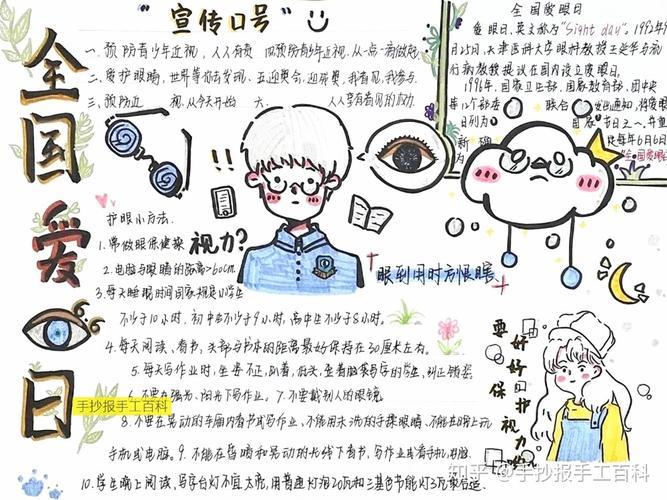 全国爱日
"宣传口号"
一.预防青少年近视,人人有责 四.预防青少年近视,从一点一滴做起
二.爱护眼睛,世界等你去发现.五.迎奥会,迎残奥,我看见,我参与
三.预防近 视,从今天开始 六. 人人享有看见的权力.
全国爱眼日
爱眼日,英文称为"Sight day".1992年9
月25日,天津医科大学眼科教授王延华与
行病教授 提议在国内设立爱眼日.
1996年,国家卫生部,国家教育部,团中央
等12个部委 联合 出通知,将爱眼
日列为 国家 节日之一,并重
新 确 定每年6月6日
为 "全国爱眼
!!
视力?
护眼小方法.
1.常做眼保健操
2.电脑与眼睛的距离>60cm.
3.每天睡眠时间国家规定小学生
不少于10小时,初中生不少于9小时,高中生不少于8小时.
4.每天阅读、看书,头部与书本的距离最好保持在30厘米左右.
5.每天写作业时,坐要不正,趴着,低头,歪着脑袋写字的学生,纠正姿势
6.不要在强光、阳光下写作业. 7.不要戴别人的眼镜.
8.不要在晃动的车厢内看书或写作业,不能用未洗的手揉眼睛,不能在晚上玩
手机或电脑.9.不能在昏暗和晃动的光线下看书,写作业或看手机,电脑.
10.学生晚上阅读,写字台灯不宜太亮,用普通灯泡20瓦和三基色节能灯3瓦最合适.
眼到用时方恨瞎
要好好保护视力哟
手抄报手工百科
知乎 @手抄报手工百科